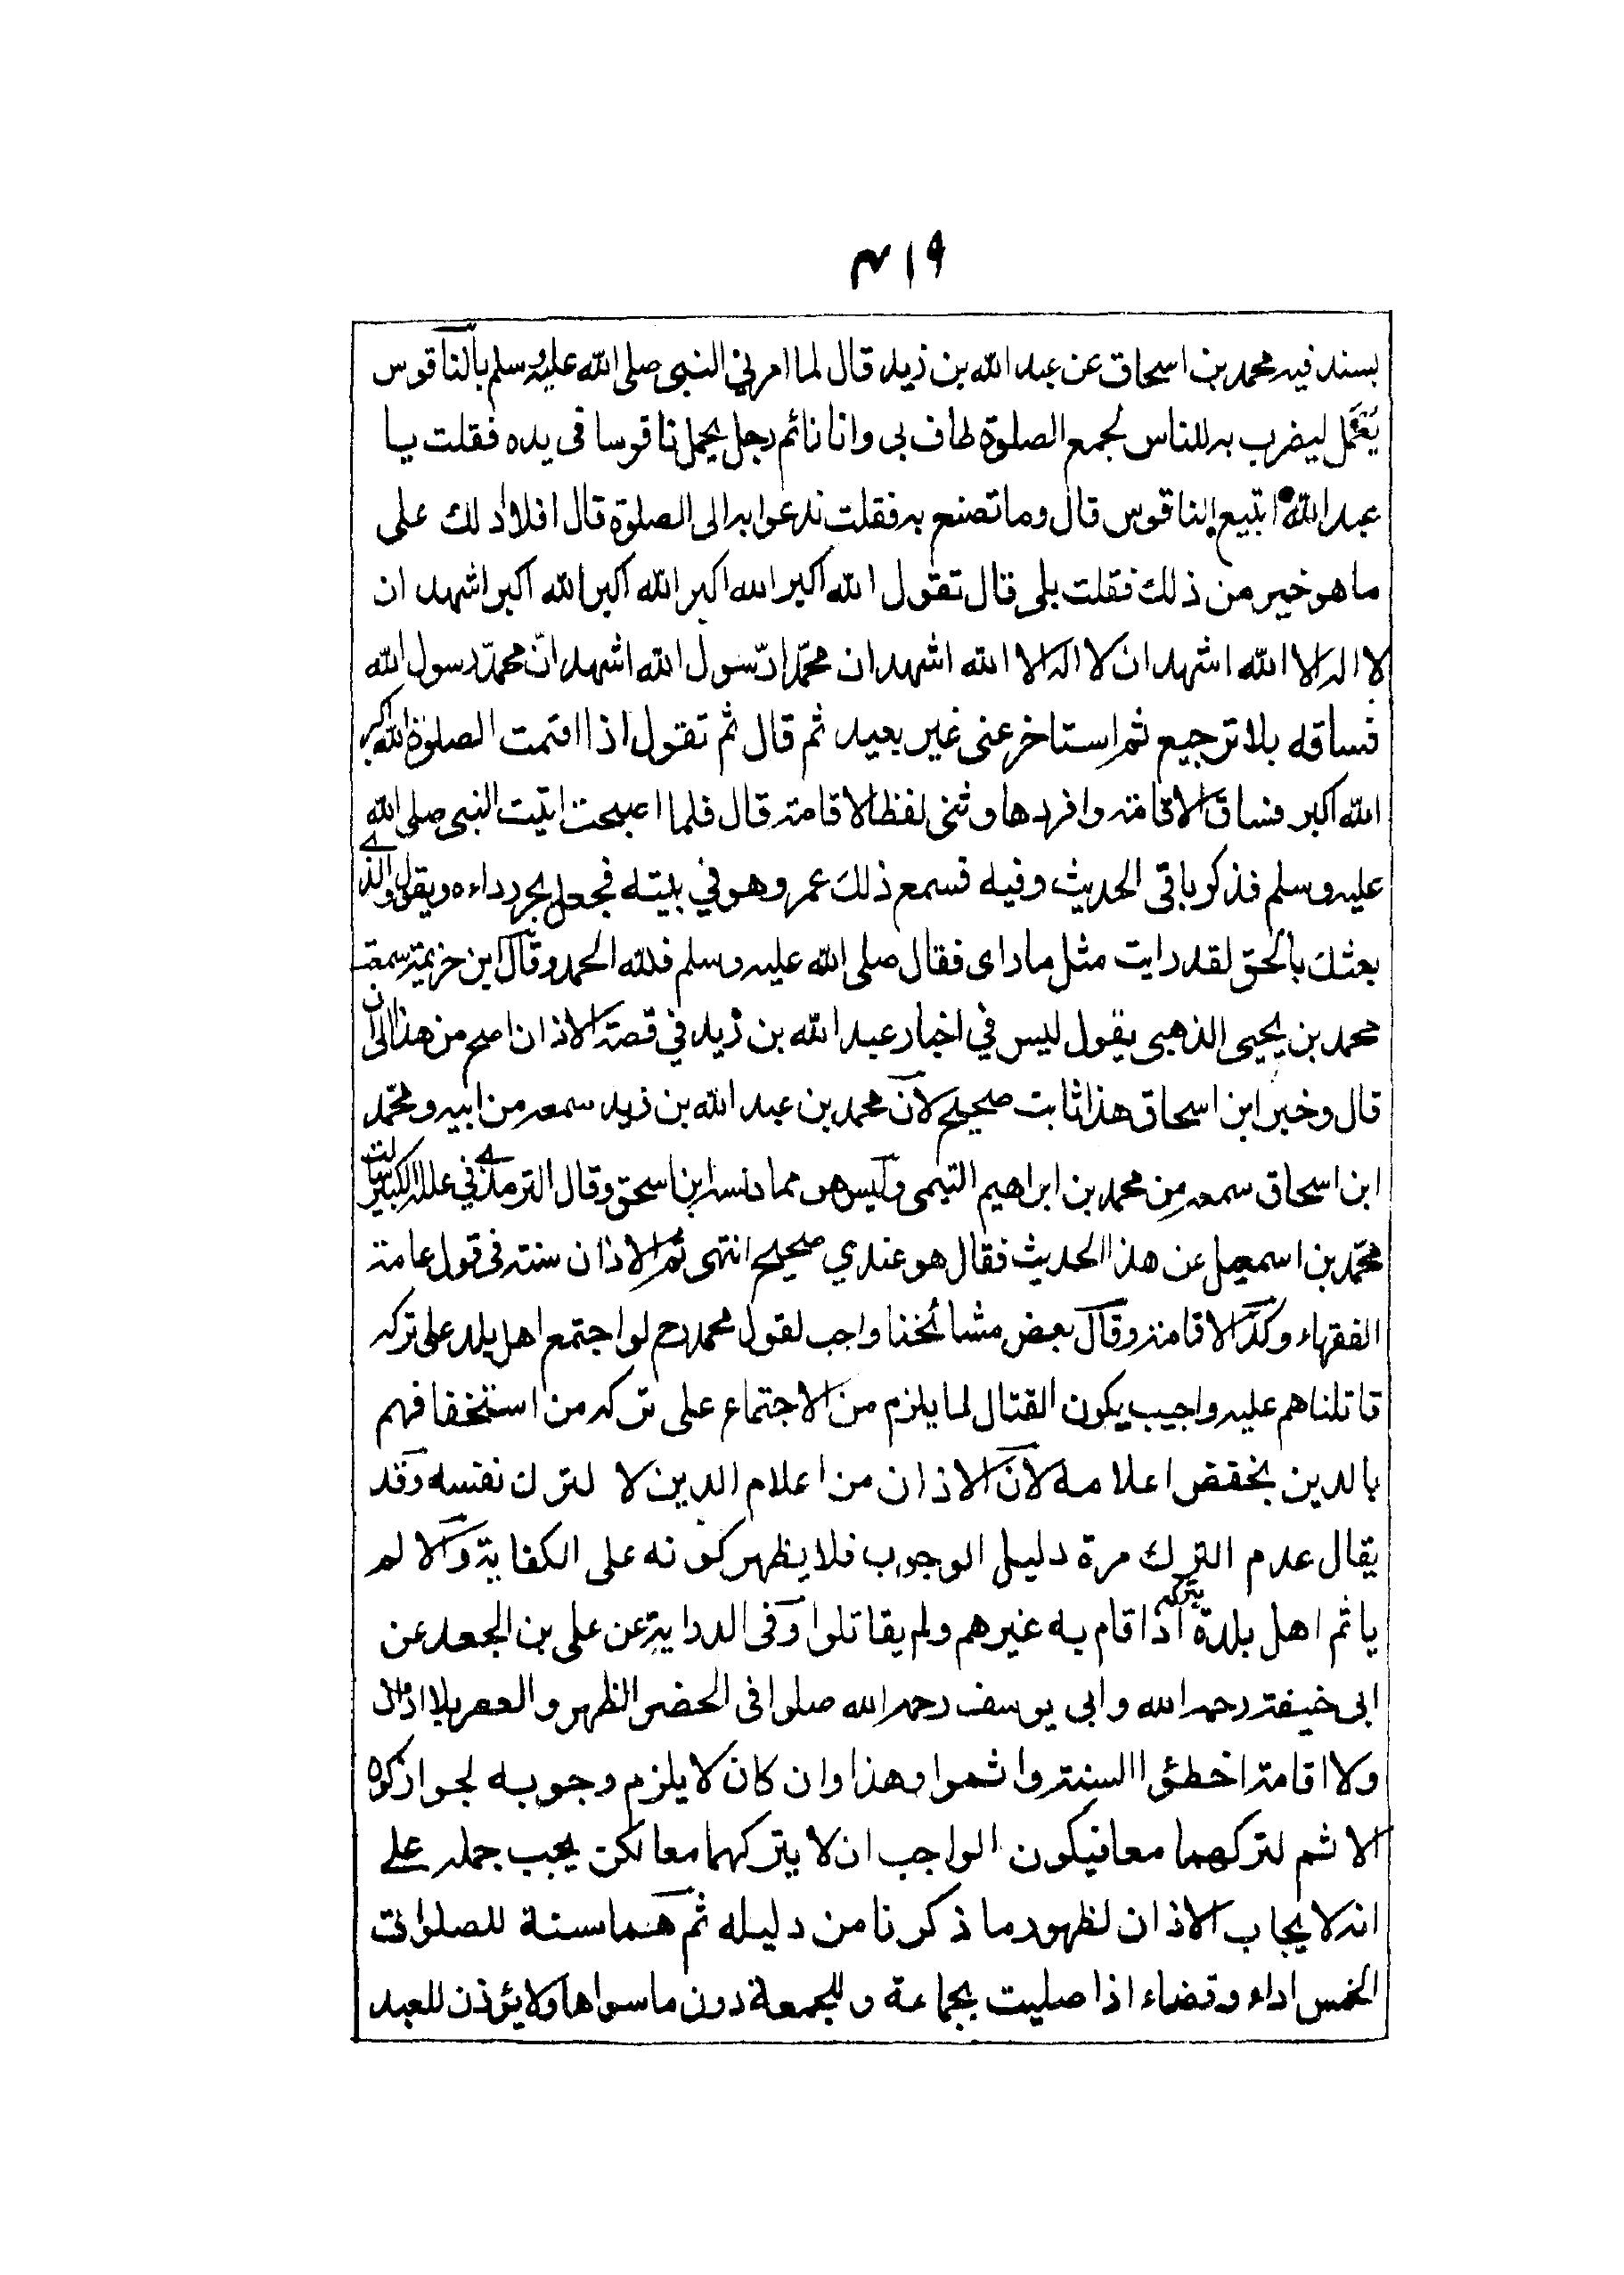 ٩١٣
بسند فيه محمد بن اسحاق عن عبد الله بن زيد قال لما امرني النبى صلى الله عليه وسلم بالناقوس
يعمل ليضرب به للناس لجمع الصلوة طاف بى وانا نائم رجل يحمل ناقوسا فى يده فقلت يا
عبد الله اتبيع الناقوس قال وما تصنع به فقلت ندعوا به الى الصلوة قال افلا ادلك على
ما هو خير من ذلك فقلت بلى قال تقول الله اكبر الله اكبر الله اكبر الله اكبر اشهد ان
لا اله الا الله اشهد ان لا اله الا الله اشهد ان محمدا رسول الله اشهد ان محمد رسول الله
فساقه بلا ترجيع ثم استاخر عنى غير بعيد ثم قال ثم تقول اذا اقمت الصلوة الله اكبر
الله اكبر فساق الاقامة وافردها وثنى لفظ الاقامة قال فلما اصبحت اتيت النبى صلى الله
عليه وسلم فذكر باقى الحديث وفيه فسمع ذلك عمر وهو في بيته فجعل يجر رداءه ويقول والذى
بعثك بالحق لقد رايت مثل ما راى فقال صلى الله عليه وسلم فلله الحمد وقال ابن خزيمة سمعت
محمد بن يحيى الذهبى يقول ليس في اخبار عبد الله بن زيد في قصة الاذان اصح من هذا الى ان
قال وخبر ابن اسحاق هذا ثابت صحيح لان محمد بن عبد الله بن زيد سمعه من ابيه ومحمد
ابن اسحاق سمعه من محمد بن ابراهيم التيمى وليس هو مما دلسه ابن اسحق وقال الترمذى في علله الكبير سالت
محمد بن اسمعيل عن هذا الحديث فقال هو عندي صحيح انتهى ثم الاذان سنة فى قول عامة
الفقهاء وكذا الاقامة وقال بعض مشائخنا واجب لقول محمد رح لو اجتمع اهل بلد على تركه
قاتلناهم عليه واجيب بكون القتال لما يلزم من الاجتماع على تركه من استخفافهم
بالدين بخفض اعلامه لان الاذان من اعلام الدين لا لترك نفسه وقد
يقال عدم الترك مرة دليل الوجوب فلا يظهر كونه على الكفاية والا لم
ياثم اهل بلدة بتركه اذا قام به غيرهم ولم يقاتلوا وفى الدراية عن على بن الجعد عن
ابى حنيفة رحمه الله وابى يوسف رحمه الله صلوا فى الحضر الظهر والعصر بلا اذان
ولا اقامة اخطئوا السنة واثموا وهذا وان كان لا يلزم وجوبه لجواز كون
الاثم لتركهما معا فيكون الواجب ان لا يتركهما معا لكن يجب حمله على
انه لايجاب الاذان لظهور ما ذكرنا من دليله ثم هما سنة للصلوات
الخمس اداء وقضاء اذا صليت بجماعة وللجمعة دون ما سواها ولا يؤذن للعيد